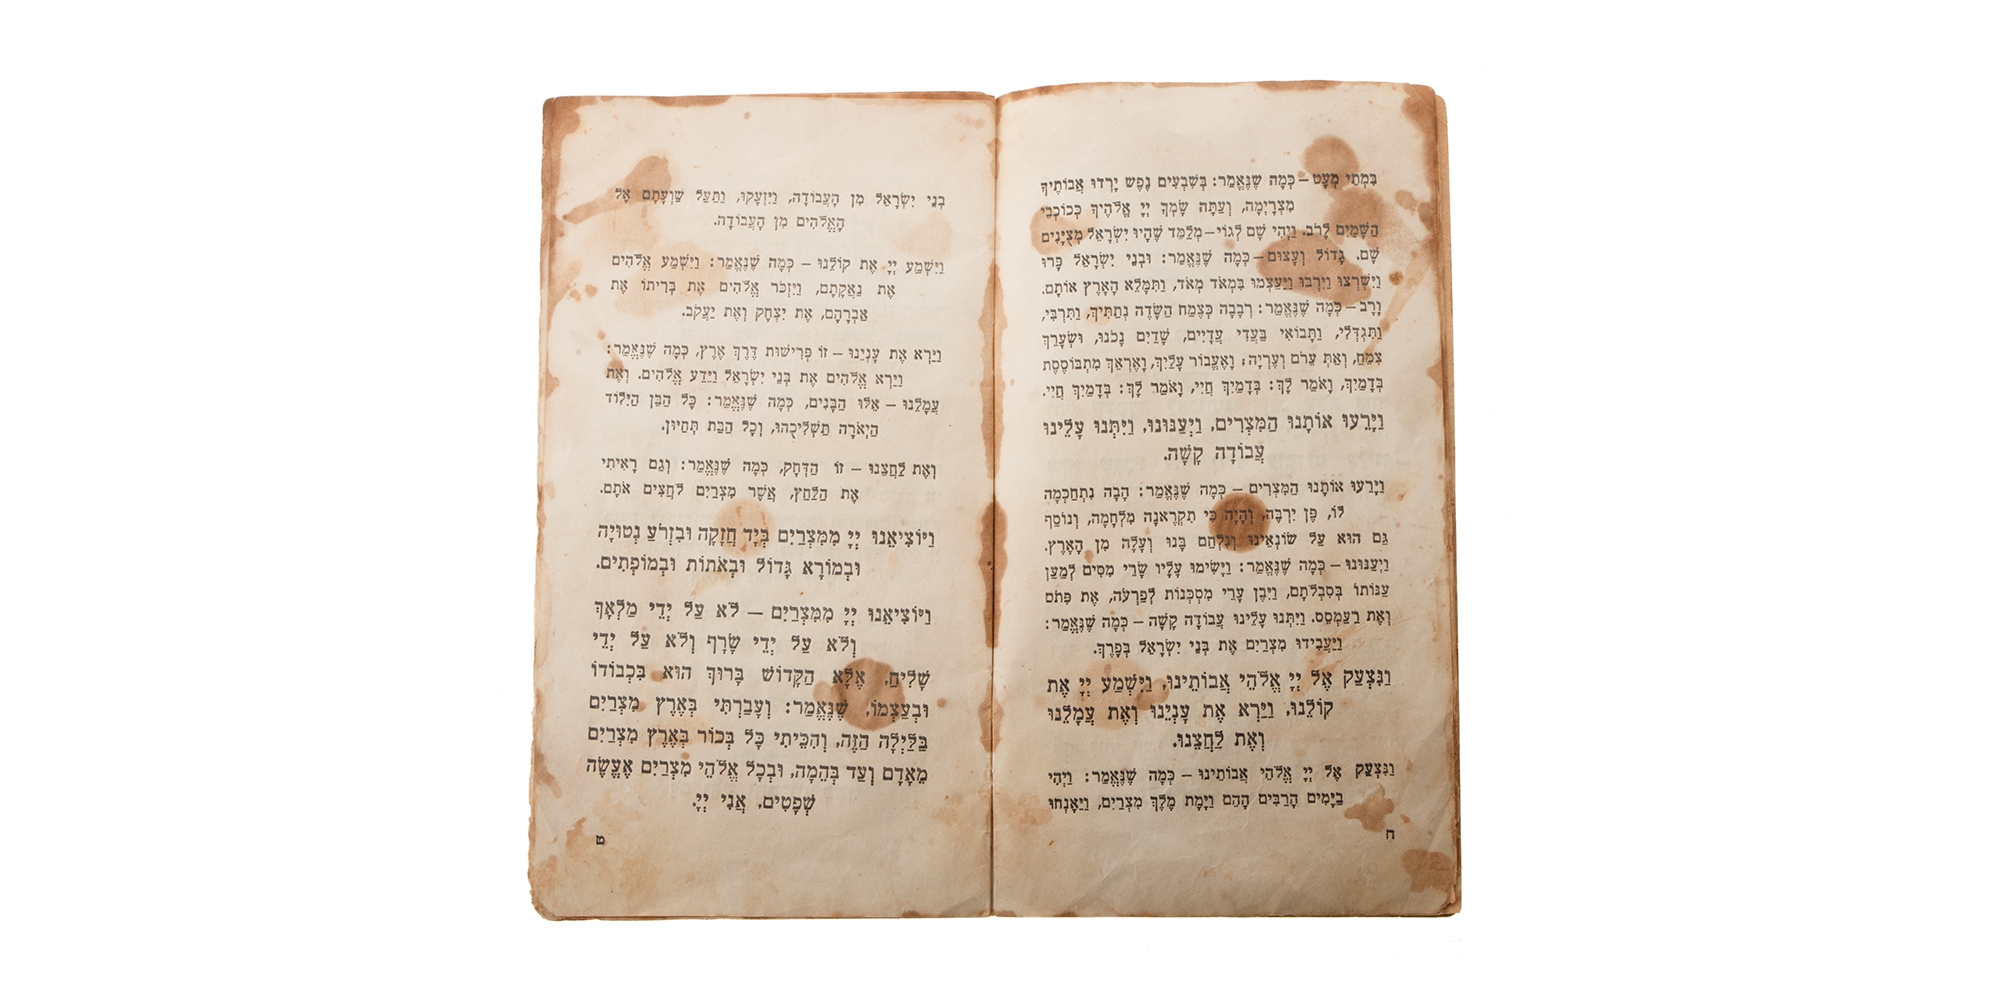 בִּמְתֵי מְעָט – כְּמָה שֶׁנֶּאֱמַר: בְּשִׁבְעִים נֶפֶשׁ יָרְדוּ אֲבוֹתֶיךָ
מִצְרָיְמָה, וְעַתָּה שָׂמְךָ יְיָ אֱלֹהֶיךָ כְּכוֹכְבֵי
הַשָּׁמַיִם לָרֹב. וַיְהִי שָׁם לְגוֹי – מְלַמֵּד שֶׁהָיוּ יִשְׂרָאֵל מְצֻיָּנִים
שָׁם. גָּדוֹל וְעָצוּם – כְּמָה שֶׁנֶּאֱמַר: וּבְנֵי יִשְׂרָאֵל פָּרוּ
וַיִּשְׁרְצוּ וַיִּרְבּוּ וַיַּעַצְמוּ בִּמְאֹד מְאֹד, וַתִּמָּלֵא הָאָרֶץ אוֹתָם.
וָרָב – כְּמָה שֶׁנֶּאֱמַר: רְבָבָה כְּצֶמַח הַשָּׂדֶה נְתַתִּיךְ, וַתִּרְבִּי,
וַתִּגְדְּלִי, וַתָּבוֹאִי בַּעֲדִי עֲדָיִים, שָׁדַיִם נָכֹנוּ, וּשְׂעָרֵךְ
צִמֵּחַ, וְאַתְּ עֵרֹם וְעֶרְיָה; וָאֶעֱבוֹר עָלַיִךְ, וָאֶרְאֵךְ מִתְבּוֹסֶסֶת
בְּדָמָיִךְ, וָאֹמַר לָךְ: בְּדָמַיִךְ חֲיִי, וָאֹמַר לָךְ: בְּדָמַיִךְ חֲיִי.
וַיָּרֵעוּ אוֹתָנוּ הַמִּצְרִים, וַיְעַנּוּנוּ, וַיִּתְּנוּ עָלֵינוּ
עֲבוֹדָה קָשָׁה.
וַיָּרֵעוּ אוֹתָנוּ הַמִּצְרִים – כְּמָה שֶׁנֶּאֱמַר: הָבָה נִתְחַכְּמָה
לוֹ, פֶּן יִרְבֶּה, וְהָיָה כִּי תִקְרֶאנָה מִלְחָמָה, וְנוֹסַף
גַּם הוּא עַל שׂוֹנְאֵינוּ וְנִלְחַם בָּנוּ וְעָלָה מִן הָאָרֶץ.
וַיְעַנּוּנוּ – כְּמָה שֶׁנֶּאֱמַר: וַיָּשִׂימוּ עָלָיו שָׂרֵי מִסִּים לְמַעַן
עַנּוֹתוֹ בְּסִבְלֹתָם, וַיִּבֶן עָרֵי מִסְכְּנוֹת לְפַרְעֹה, אֶת פִּתֹם
וְאֶת רַעַמְסֵס. וַיִּתְּנוּ עָלֵינוּ עֲבוֹדָה קָשָׁה – כְּמָה שֶׁנֶּאֱמַר:
וַיַּעֲבִידוּ מִצְרַיִם אֶת בְּנֵי יִשְׂרָאֵל בְּפָרֶךְ.
וַנִּצְעַק אֶל יְיָ אֱלֹהֵי אֲבוֹתֵינוּ, וַיִּשְׁמַע יְיָ אֶת
קוֹלֵנוּ, וַיַּרְא אֶת עָנְיֵנוּ וְאֶת עֲמָלֵנוּ
וְאֶת לַחֲצֵנוּ.
וַנִּצְעַק אֶל יְיָ אֱלֹהֵי אֲבוֹתֵינוּ – כְּמָה שֶׁנֶּאֱמַר: וַיְהִי
בַיָּמִים הָרַבִּים הָהֵם וַיָּמָת מֶלֶךְ מִצְרַיִם, וַיֵּאָנְחוּ
ח
בְנֵי יִשְׂרָאֵל מִן הָעֲבוֹדָה, וַיִּזְעָקוּ, וַתַּעַל שַׁוְעָתָם אֶל
הָאֱלֹהִים מִן הָעֲבוֹדָה.
וַיִּשְׁמַע יְיָ אֶת קוֹלֵנוּ – כְּמָה שֶׁנֶּאֱמַר: וַיִּשְׁמַע אֱלֹהִים
אֶת נַאֲקָתָם, וַיִּזְכֹּר אֱלֹהִים אֶת בְּרִיתוֹ אֶת
אַבְרָהָם, אֶת יִצְחָק וְאֶת יַעֲקֹב.
וַיַּרְא אֶת עָנְיֵנוּ – זוֹ פְּרִישׁוּת דֶּרֶךְ אֶרֶץ, כְּמָה שֶׁנֶּאֱמַר:
וַיַּרְא אֱלֹהִים אֶת בְּנֵי יִשְׂרָאֵל וַיֵּדַע אֱלֹהִים. וְאֶת
עֲמָלֵנוּ – אֵלּוּ הַבָּנִים, כְּמָה שֶׁנֶּאֱמַר: כָּל הַבֵּן הַיִּלּוֹד
הַיְאֹרָה תַּשְׁלִיכֻהוּ, וְכָל הַבַּת תְּחַיּוּן.
וְאֶת לַחֲצֵנוּ – זוֹ הַדְּחָק, כְּמָה שֶׁנֶּאֱמַר: וְגַם רָאִיתִי
אֶת הַלַּחַץ, אֲשֶׁר מִצְרַיִם לֹחֲצִים אֹתָם.
וַיּוֹצִיאֵנוּ יְיָ מִמִּצְרַיִם בְּיָד חֲזָקָה וּבִזְרֹעַ נְטוּיָה
וּבְמוֹרָא גָּדוֹל וּבְאֹתוֹת וּבְמוֹפְתִים.
וַיּוֹצִיאֵנוּ יְיָ מִמִּצְרַיִם – לֹא עַל יְדֵי מַלְאָךְ
וְלֹא עַל יְדֵי שָׂרָף וְלֹא עַל יְדֵי
שָׁלִיחַ, אֶלָּא הַקָּדוֹשׁ בָּרוּךְ הוּא בִּכְבוֹדוֹ
וּבְעַצְמוֹ, שֶׁנֶּאֱמַר: וְעָבַרְתִּי בְּאֶרֶץ מִצְרַיִם
בַּלַּיְלָה הַזֶּה, וְהִכֵּיתִי כָּל בְּכוֹר בְּאֶרֶץ מִצְרַיִם
מֵאָדָם וְעַד בְּהֵמָה, וּבְכָל אֱלֹהֵי מִצְרַיִם אֶעֱשֶׂה
שְׁפָטִים, אֲנִי יְיָ.
ט